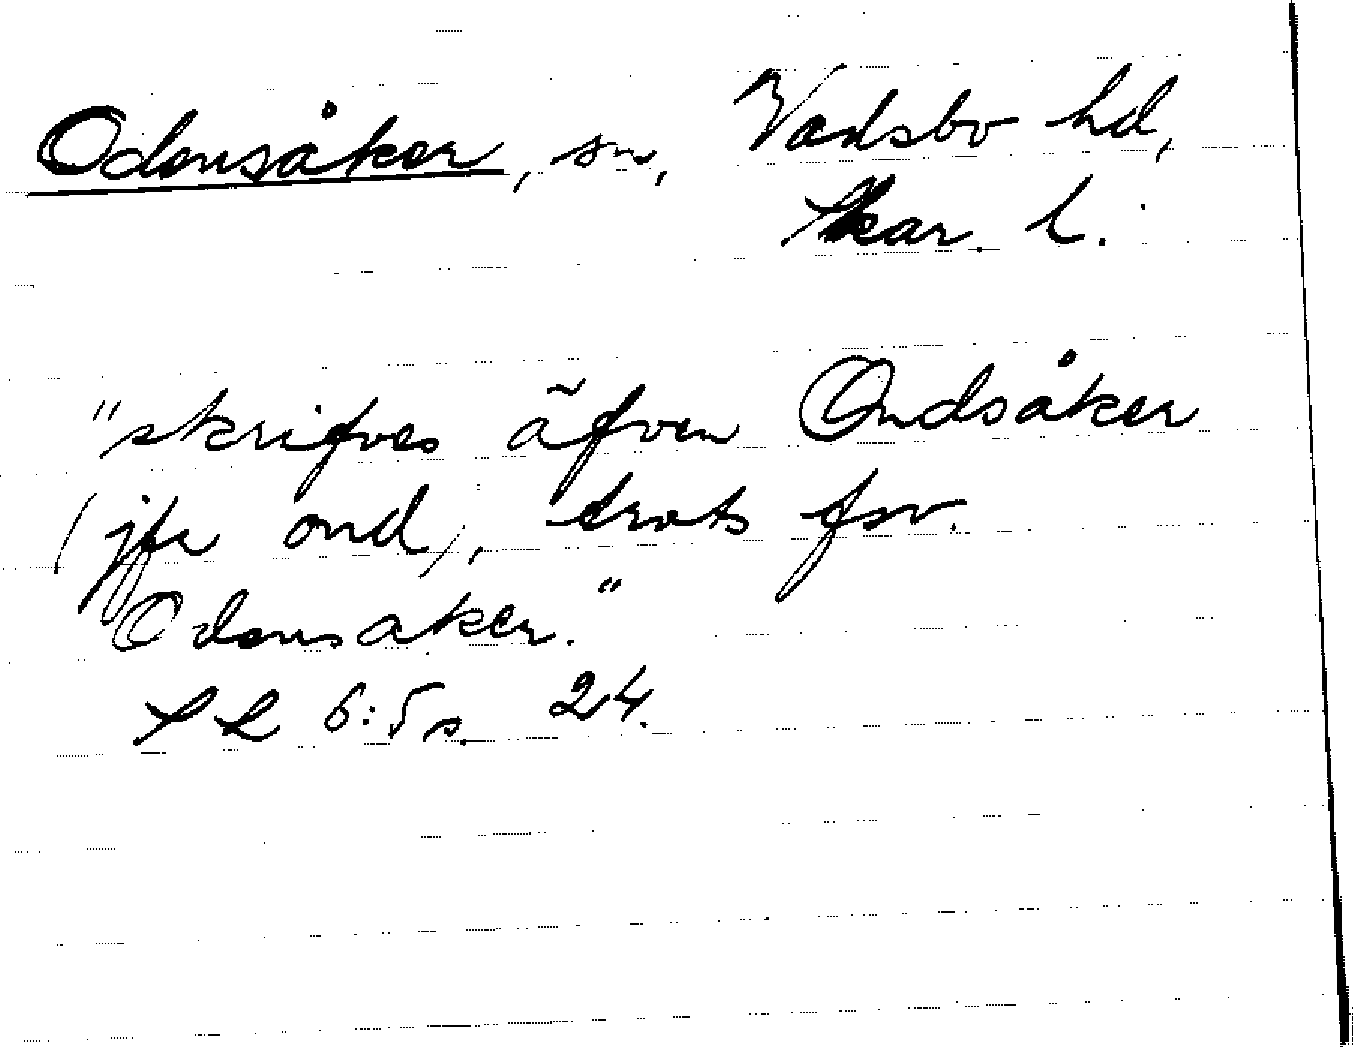 Odensåker, sn, Vadsbo hd,
Skar. l.
"skrifves äfven Ondsåker
(jfr ond), trots fsv.
Odensaker."
SL 6:5 s. 24.